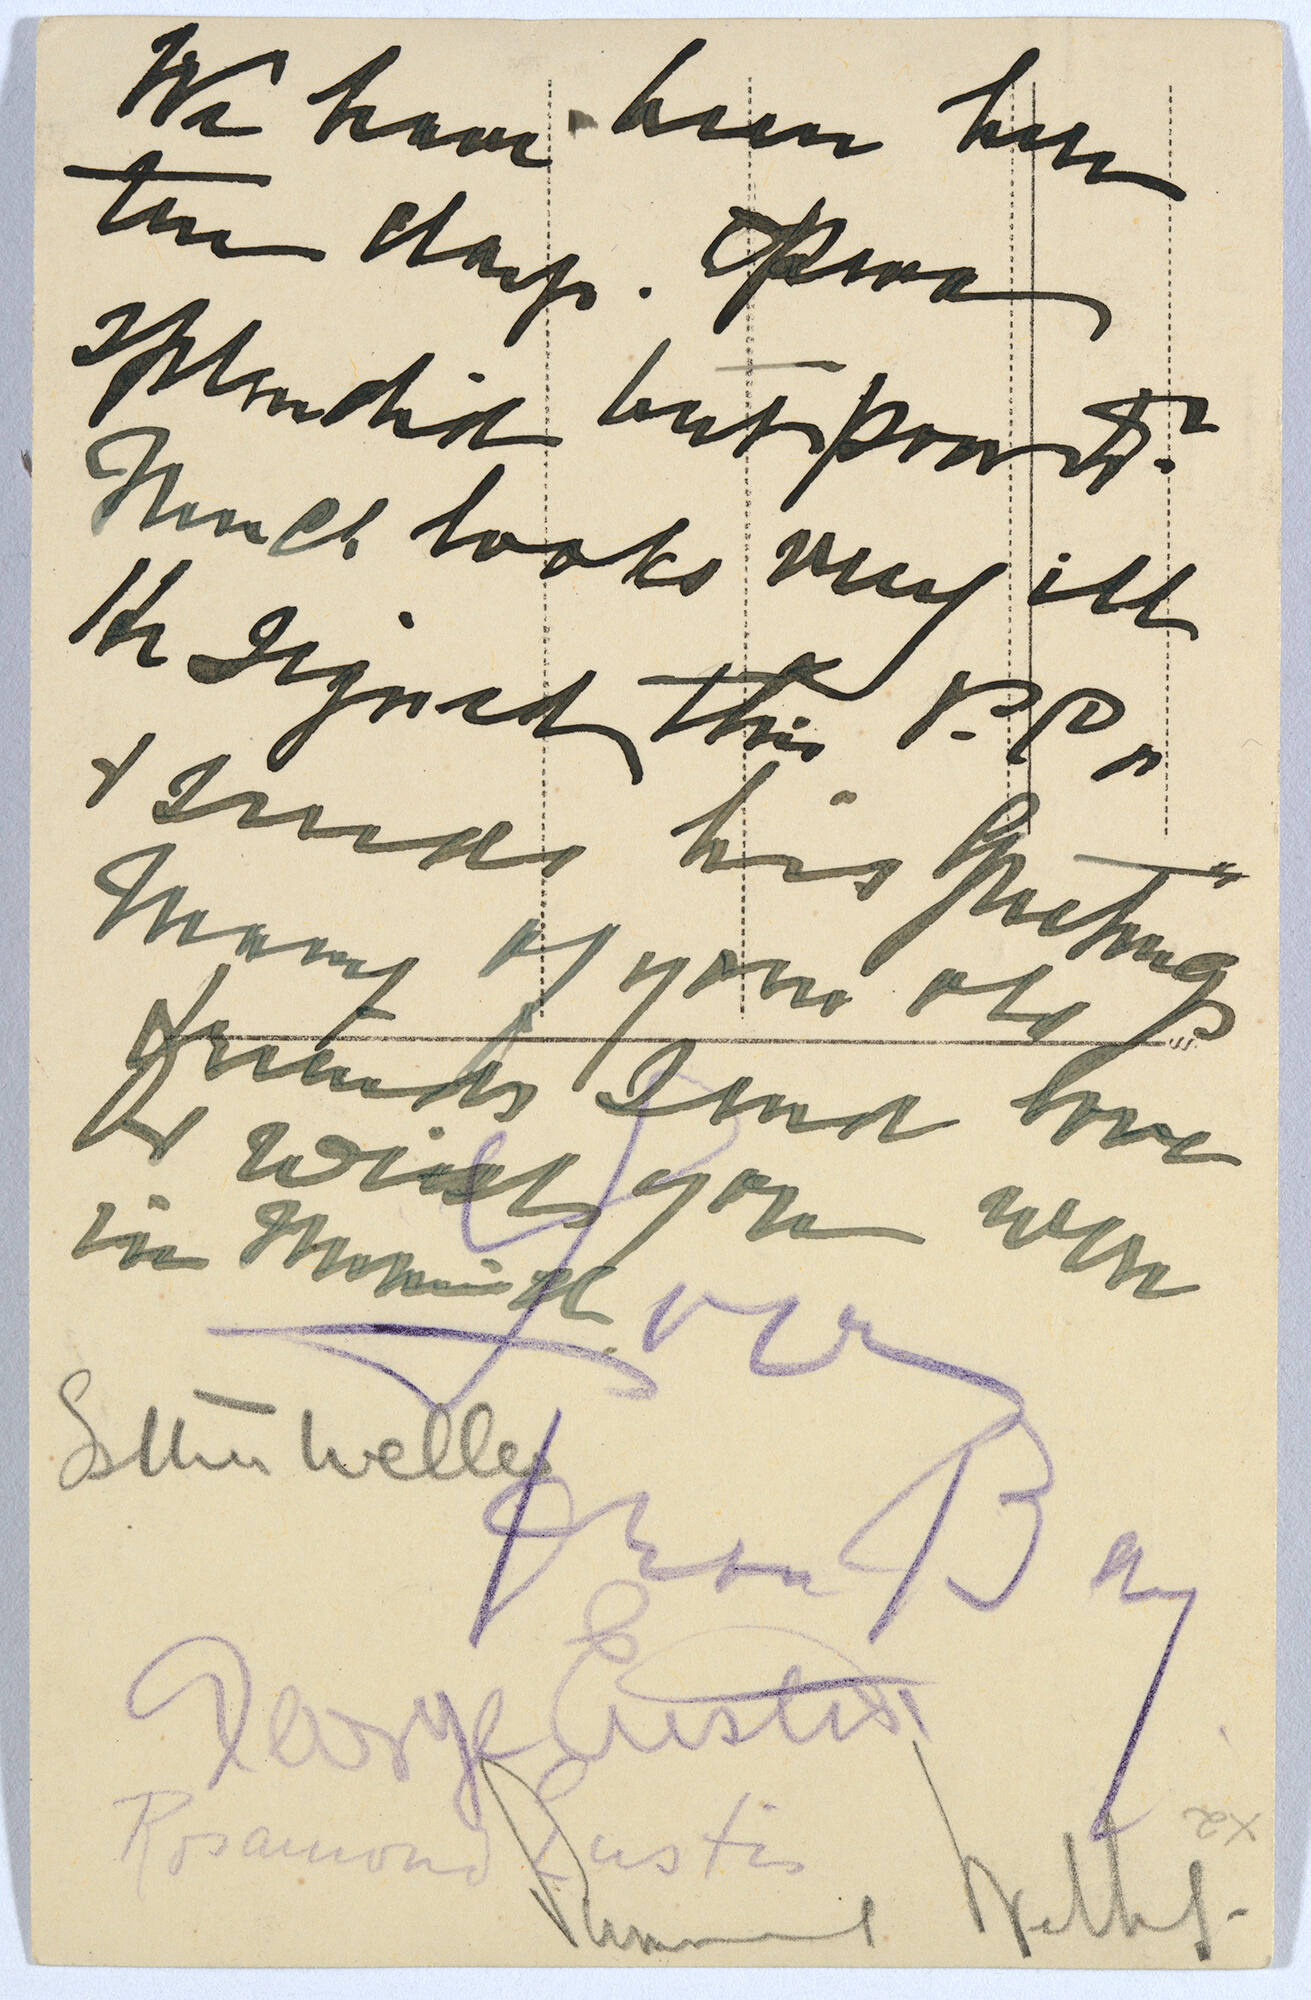 We have been here
ten days. Opera
splendid but poor
Munch looks very ill
He signed this P.P.
& sends his Greetings
Many of your old
friends send love
& wish you were
in Munich
Love
Esther Welles
George Eustis
Rosamond Eustis